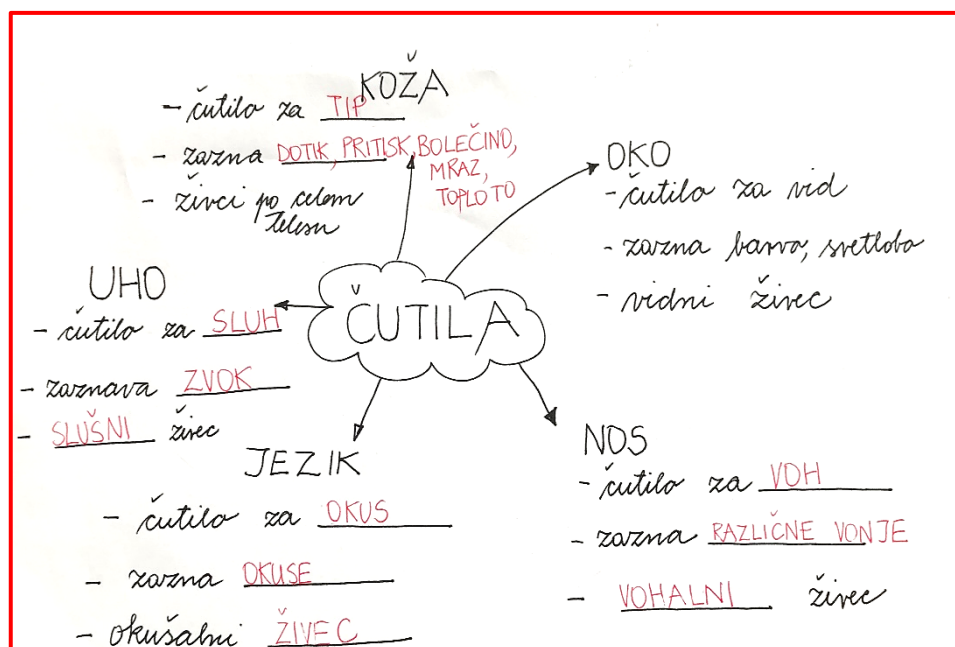 KOŽA
- čutilo za TIP
- zazna DOTIK, PRITISK, BOLEČINO,
MRAZ,
TOPLOTO
- živci po celem
telesu
OKO
- čutilo za vid
- zazna barvo, svetlobo
- vidni živec
ČUTILA
UHO
- čutilo za SLUH
- zaznava ZVOK
- SLUŠNI živec
JEZIK
- čutilo za OKUS
- zazna OKUSE
- okušalni ŽIVEC
NOS
- čutilo za VOH
- zazna RAZLIČNE VONJE
- VOHALNI živec